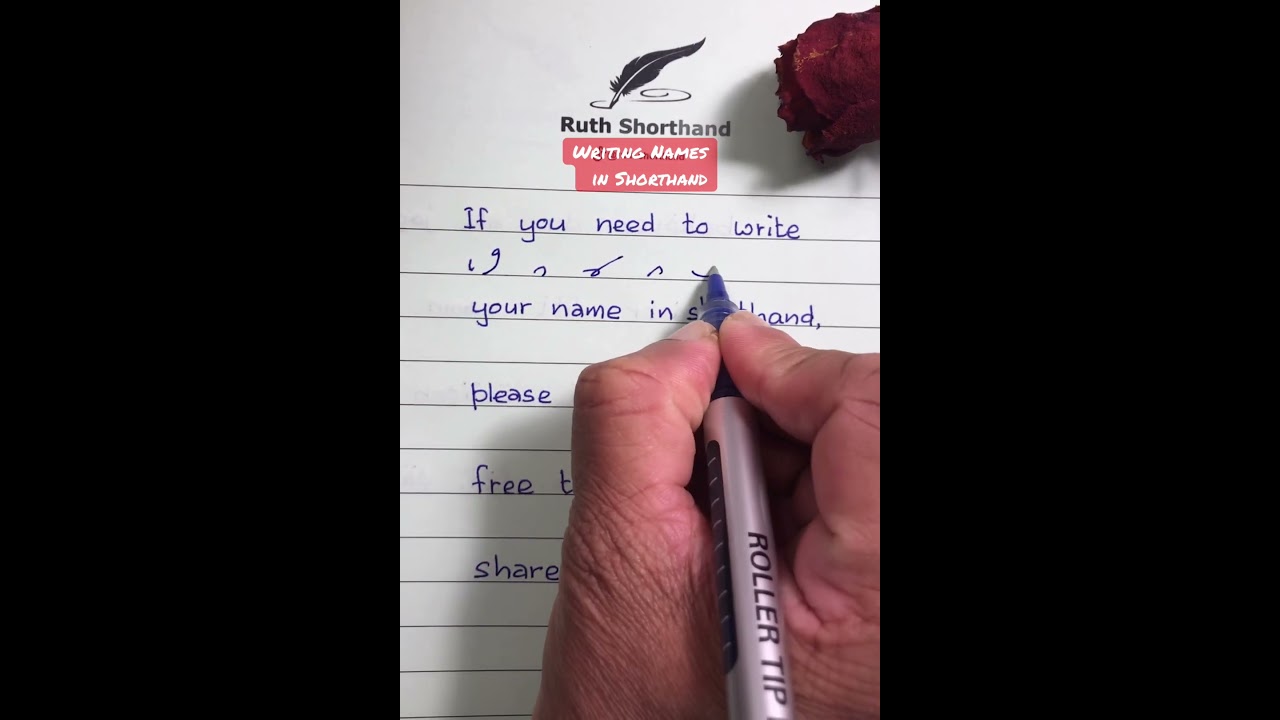 Ruth Shorthand
Writing Names
in Shorthand
If you need to write
your name in shorthand,
please
free
share
ROLLER TIP